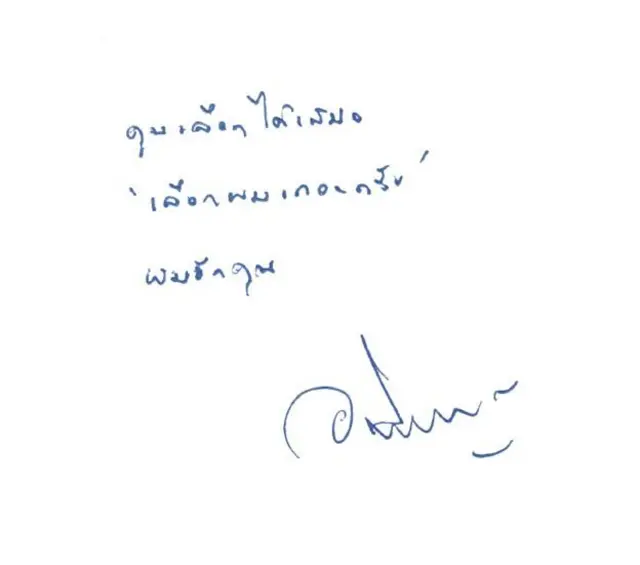 คุณเลือกได้เสมอ
'เลือกผมเถอะครับ'
ผมรักคุณ